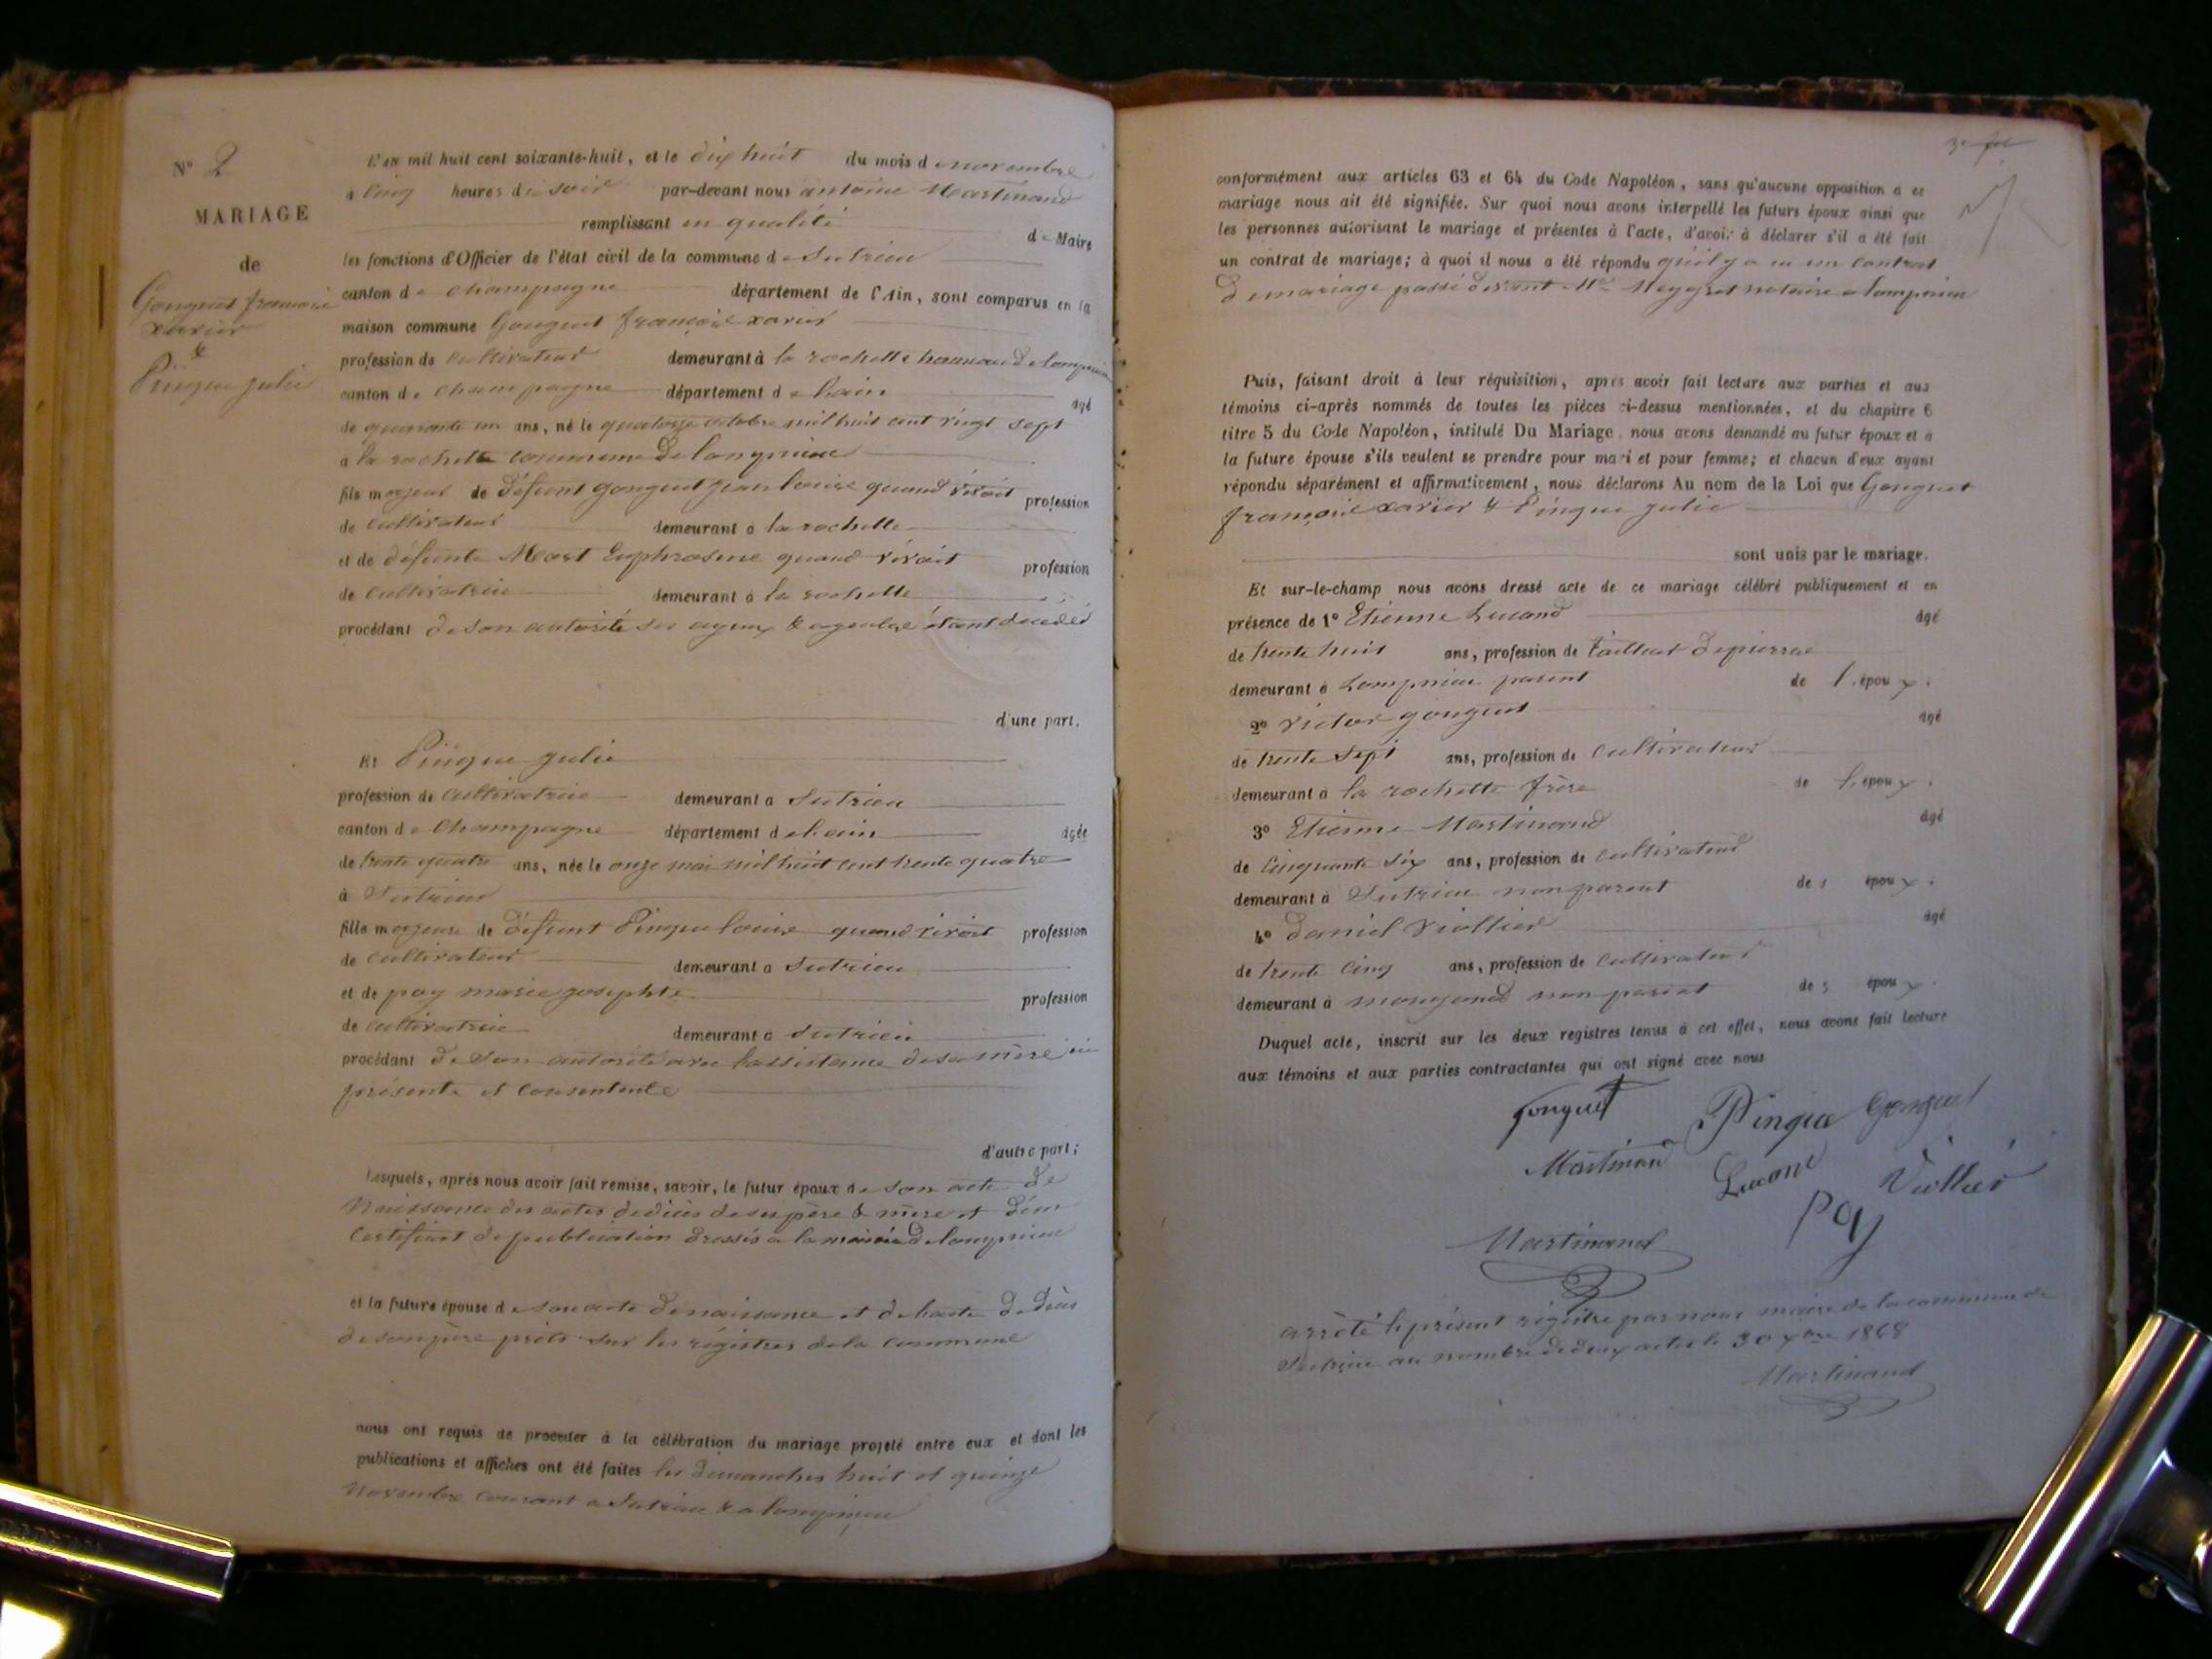 N° 2
MARIAGE
de
Gonguet françois
xavier
&
Pingue julie
L'an mil huit cent soixante-huit, et le dix huit du mois de novembre
à cinq heures du soir par-devant nous antoine Martinand
remplissant en qualité de Maire
les fonctions d'Officier de l'état civil de la commune de Sutrieu
canton de champagne département de l'Ain, sont comparus en la
maison commune Gonguet françois xavier
profession de cultivateur demeurant à la rochette hameau de lompnieu
canton de champagne département de lain âgé
de quarante un ans, né le quatorze octobre mil huit cent vingt sept
à la rochette commune de lompnieu
fils majeur de défunt gonguet jean louis quand vivait profession
de cultivateur demeurant à la rochette
et de défunte Mast Euphrosine quand vivait profession
de cultivatrice demeurant à la rochette
procédant de son autorité ses ayeux & ayeules étant décédés
d'une part.
Et Pingue julie
profession de cultivatrice demeurant à Sutrieu
canton de Champagne département de lain âgée
de trente quatre ans, née le onze mai mil huit cent trente quatre
à Sutrieu
fille majeure de défunt Pingue louis quand vivait profession
de cultivateur demeurant à Sutrieu
et de poy marie josephte profession
de cultivatrice demeurant à Sutrieu
procédant de son autorité avec lassistance de sa mère ici
présente et consentente
d'autre part;
Lesquels, après nous avoir fait remise, savoir, le futur époux de son acte de
Naissance des actes de décès de ses père & mère et d'un
Certificat de publication dressés a la mairie de lompnieu
et la future épouse de son acte de naissance et de lacte de décès
de son père près sur les régistres de la commune
nous ont requis de procéder à la célébration du mariage projeté entre eux et dont les
publications et affiches ont été faites les dimanches huit et quinze
novembre courant a Sutrieu & a lompnieu
conformément aux articles 63 et 64 du Code Napoléon, sans qu'aucune opposition à ce
mariage nous ait été signifiée. Sur quoi nous avons interpellé les futurs époux ainsi que
les personnes autorisant le mariage et présentes à l'acte, d'avoir à déclarer s'il a été fait
un contrat de mariage; à quoi il nous a été répondu quil y a eu un contrat
de mariage passé devant Me Meygret notaire a lompnieu
Puis, faisant droit à leur réquisition, après avoir fait lecture aux parties et aux
témoins ci-après nommés de toutes les pièces ci-dessus mentionnées, et du chapitre 6
titre 5 du Code Napoléon, intitulé Du Mariage, nous avons demandé au futur époux et à
la future épouse s'ils veulent se prendre pour mari et pour femme; et chacun d'eux ayant
répondu séparément et affirmativement, nous déclarons Au nom de la Loi que Gonguet
françois xavier & Pingue julie
sont unis par le mariage.
Et sur-le-champ nous avons dressé acte de ce mariage célébré publiquement et en
présence de 1° Etienne Lucand âgé
de trente huit ans, profession de tailleur de pierres
demeurant à Lompnieu parent de l'époux.
2° Victor gonguet âgé
de trente Sept ans, profession de cultivateur
demeurant à la rochette frère de l'époux.
3° Etienne Martinand âgé
de Cinquante six ans, profession de cultivateur
demeurant à Sutrieu non parent des époux.
4° daniel Viollier âgé
de trente cinq ans, profession de cultivateur
demeurant à mongonod non parent des époux.
Duquel acte, inscrit sur les deux registres tenus à cet effet, nous avons fait lecture
aux témoins et aux parties contractantes qui ont signé avec nous
gonguet Pingue Gonguet
Martinand Lucand Viollier
Poy
Martinand
arrêté le présent régistre par nous maire de la commune de
Sutrieu au nombre de deux actes le 30 xbre 1868
Martinand